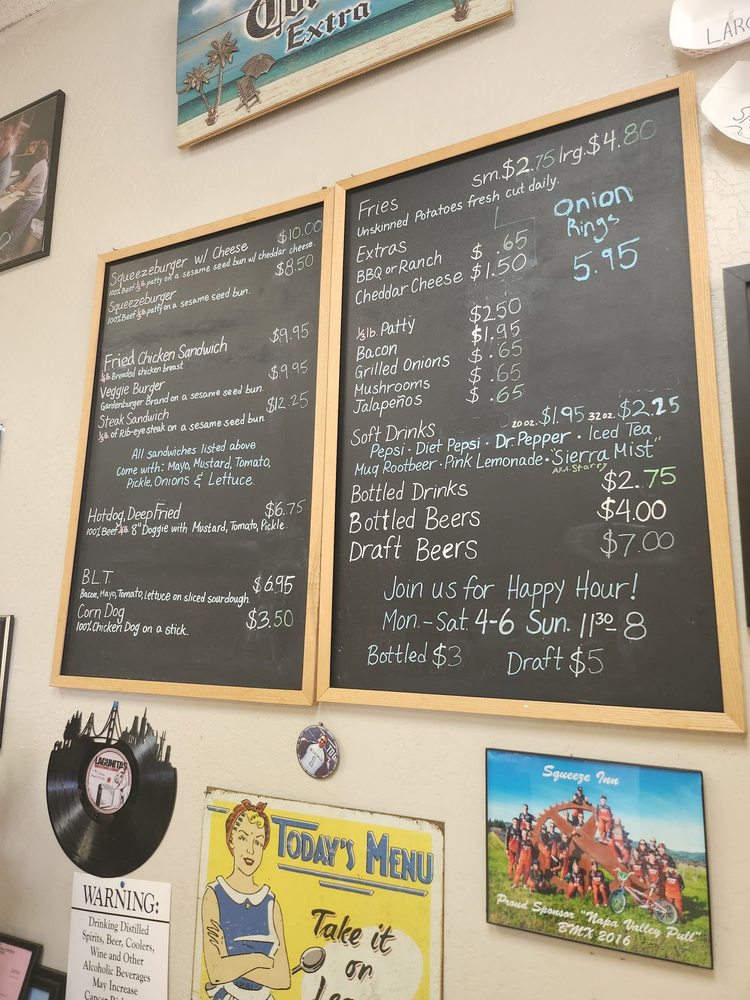 Corona
Extra
LARG
Squeezeburger w/ Cheese $10.00
100% Beef ⅓ lb patty on a sesame seed bun w/ cheddar cheese.
Squeezeburger $8.50
100% Beef ⅓ lb patty on a sesame seed bun.
Fried Chicken Sandwich $9.95
¼ lb Breaded chicken breast
Veggie Burger $9.95
Gardenburger Brand on a sesame seed bun.
Steak Sandwich $12.25
of Rib-eye steak on a sesame seed bun
All sandwiches listed above
come with: Mayo, Mustard, Tomato,
Pickle, Onions & Lettuce.
Hotdog, Deep Fried $6.75
100% Beef 8" Doggie with Mustard, Tomato, Pickle.
B.L.T. $6.95
Bacon, Mayo, Tomato, lettuce on sliced sourdough.
Corn Dog $3.50
100% Chicken Dog on a stick.
Fries sm.$2.75 lrg.$4.80
Unskinned Potatoes fresh cut daily.
Extras
BBQ or Ranch $ .65
Cheddar Cheese $1.50
Onion
Rings
5.95
⅓ lb. Patty $2.50
Bacon $1.95
Grilled Onions $ .65
Mushrooms $ .65
Jalapeños $ .65
Soft Drinks 20 oz. $1.95 32 oz. $2.25
Pepsi · Diet Pepsi · Dr. Pepper · Iced Tea
Mug Rootbeer · Pink Lemonade · "Sierra Mist"
A.K.A. Starry
Bottled Drinks $2.75
Bottled Beers $4.00
Draft Beers $7.00
Join us for Happy Hour!
Mon.-Sat. 4-6 Sun. 11:30-8
Bottled $3 Draft $5
LAGUNITAS
WARNING:
Drinking Distilled
Spirits, Beer, Coolers,
Wine and Other
Alcoholic Beverages
May Increase
Cancer Risk
TODAY'S MENU
Take it
or
Squeeze Inn
Proud Sponsor "Napa Valley Pull"
BMX 2016